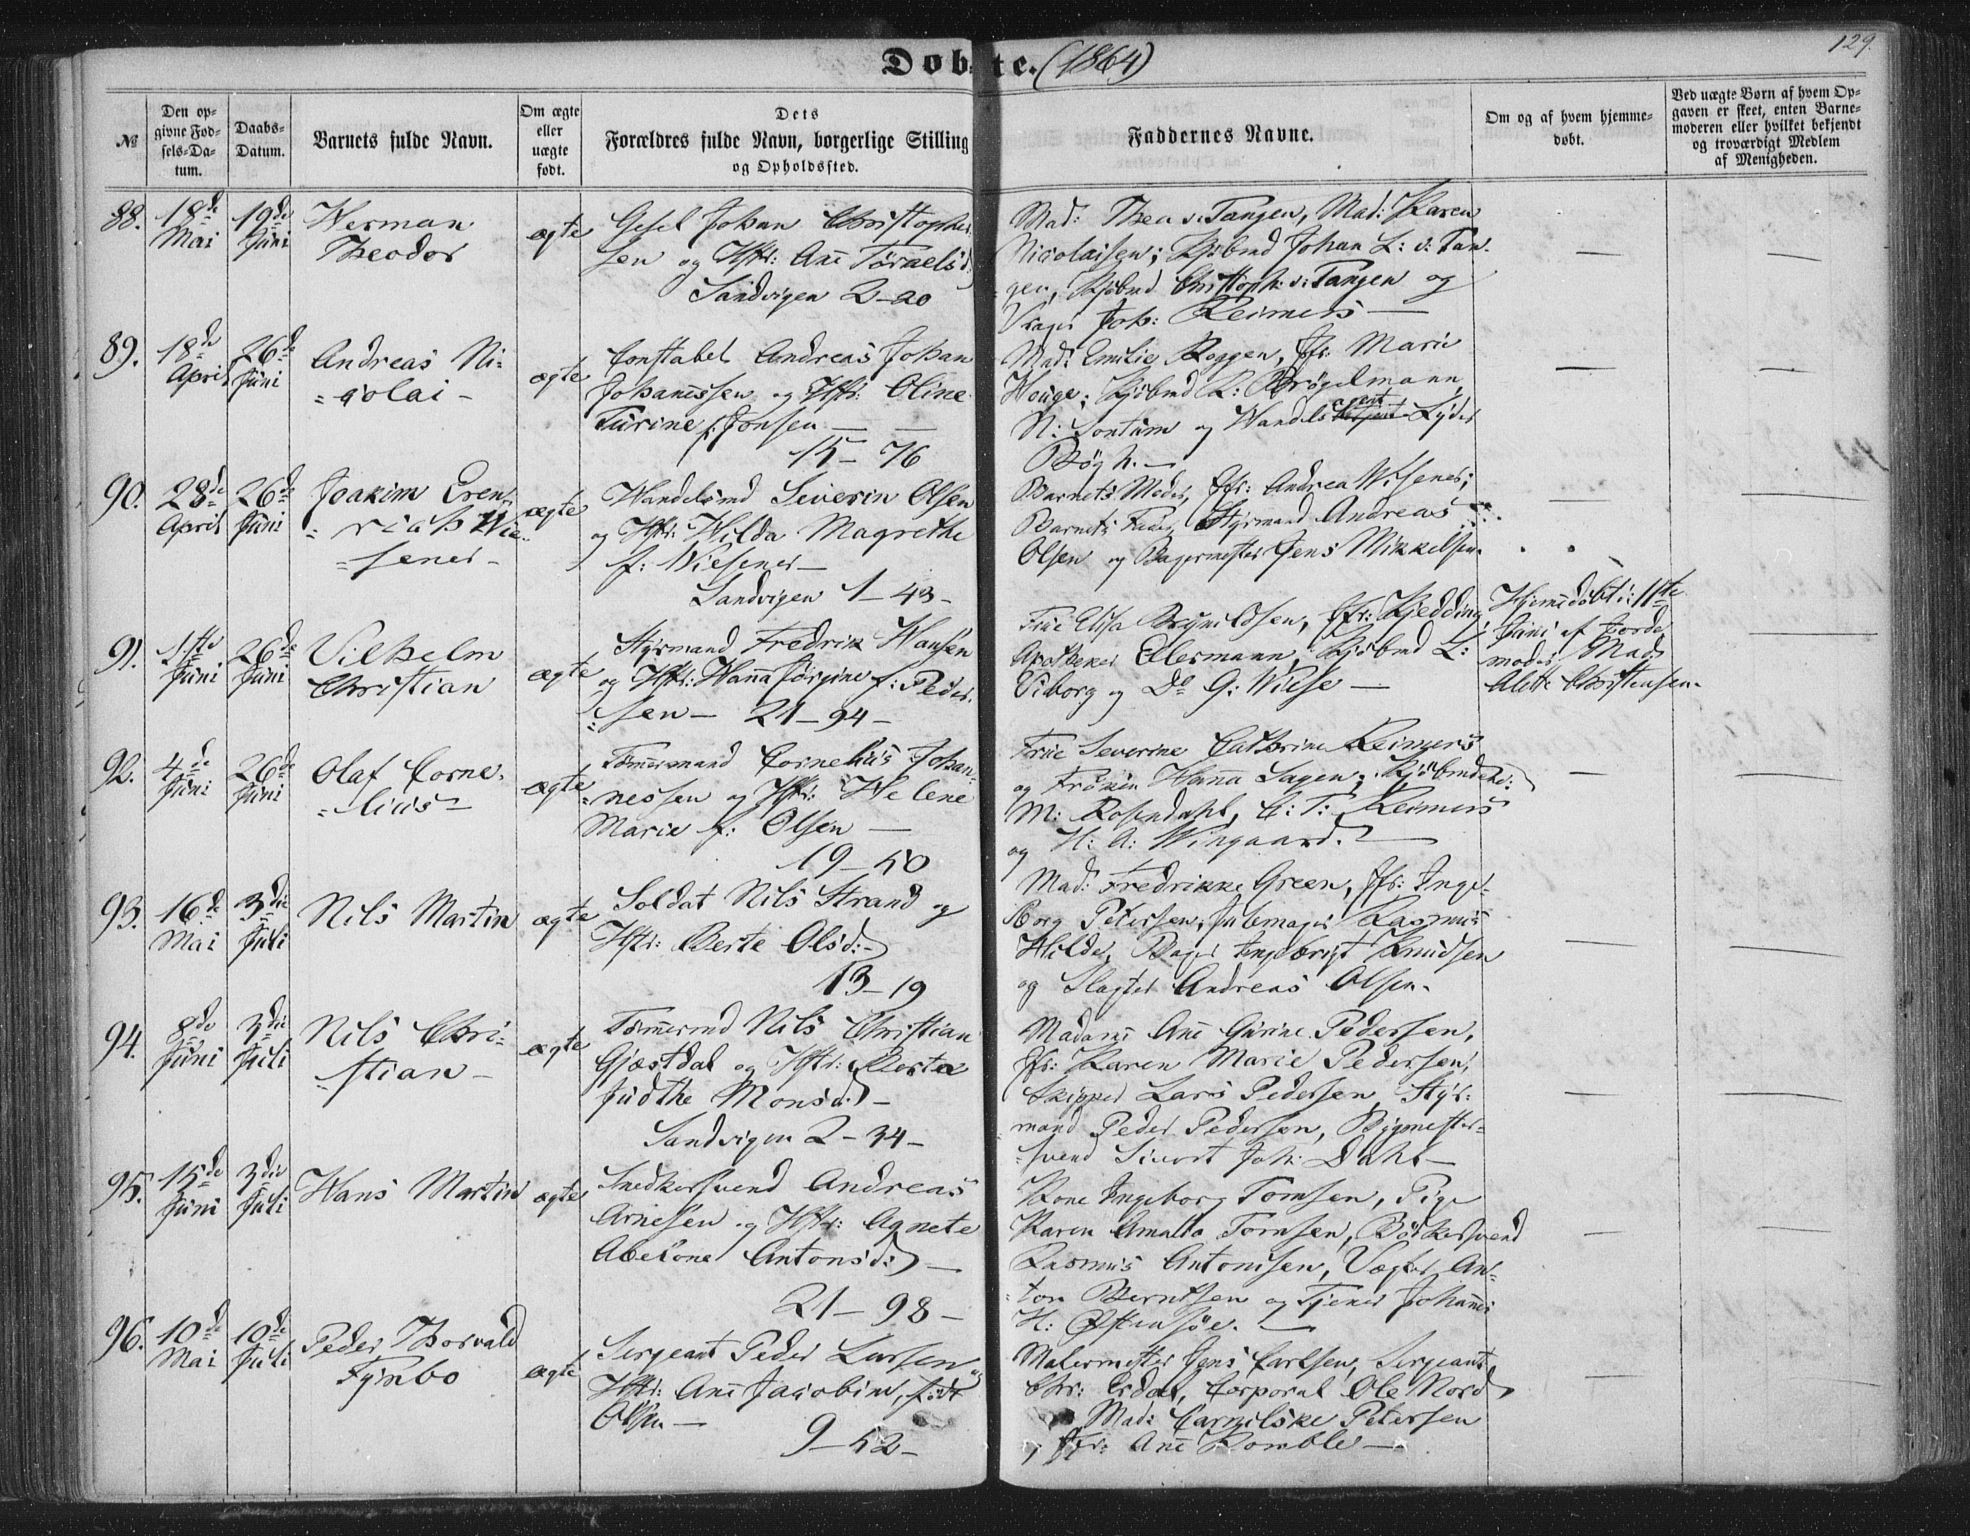 Døbte. (1864)
129.
№
Den op-
givne Fød-
sels-Da-
tum.
Daabs-
Datum.
Barnets fulde Navn.
Om ægte
eller
uægte
født.
Dets
Forældres fulde Navn, borgerlige Stilling
og Opholdssted.
Faddernes Navne.
Om og af hvem hjemme-
døbt.
Ved uægte Børn af hvem Op-
gaven er skeet, enten Barne-
moderen eller hvilket bekjendt
og troværdigt Medlem
af Menigheden.
88. 18de Mai
19de Juni
Herman
Theodor
ægte
Gesel Johan Christopher
sen og Hstr: Ane Tørnelsd:
Sandvigen 2-20
Mad: Thea v. Tangen, Mad: Karen
Nicolaisen; Kjøbmd Johan L: v: Tan-
gen, Kjøbmd Christoph: v: Tangen og
Joh: Reimers —
—
—
89. 18de April
26de Juni
Andreas Ni-
colai -
ægte
Constabel Andreas Johan
Johanessen og Hstr: Oline
Turine f: Jonsen — —
15-76
Mad: Emilie Roggen, Jfr: Marie
Houge; Kjøbmd L: Brøgelmann,
N: Sontum og Handelsagent Lyder
Bøgh. -
—
—
90. 28de April
26de Juni
Joakim
Wie-
sener -
ægte
Handelsmd Severin Olsen
og Hstr: Hilda Magrethe
f: Wiesener -
Sandvigen 1-43-
Barnets Moder, Jfr: Andrea Wisener;
Barnets Fader, Styrmand Andreas
Olsen og Bagermester Jens Mikkelsen.
—
—
91. 1ste Juni
26de Juni
Vilhelm
Christian
ægte
Styrmand Fredrik Hansen
og Hstr: Hanna Jørgine f: Peder-
sen - 21-94-
Frue Elisa Brynildsen, Jfr: Kjedding,
Apotheker Ellermann, Kjøbmd L:
Viborg og Do G: Wiese —
Hjemedøbt i: 11te
Juni af Jorde-
moder Mad:
Alette Christensen.
—
92. 4de Juni
26de Juni
Olaf Corne-
lius
ægte
Tømermand Cornelius Johan-
nessen og Hstr: Helene
Marie f: Olsen —
19-50
Frue Severine Cathrine Reimers
og Frøken Hanna Sagen; Kjøbmdene:
M: Rosendahl, C: T: Reimers
og H: A: Wingaard. —
—
—
93. 16de Mai
3die Juli
Nils Martin
ægte
Soldat Nils Strand og
Hstr: Berte Olsd: -
13-19
Mad: Fredrikke Green, Jfr: Inge-
borg Petersen, Rasmus
Hilder, Bager Ingebrigt Knudsen
og Slagter Andreas Olsen.
—
—
94. 8de Juni
3die Juli
Nils Chri-
stian -
ægte
Tømermd Nils Christian
Gjæstdal og Hstr: Berte
Judthe Monsd: -
Sandvigen 2-34-
Madame Ane Gurine Pedersen,
Jfr: Karen Marie Pedersen,
Skipper Lars Pedersen, Styr-
mand Peder Pedersen, Bygmester-
svend Sivert Joh: Dahl —
—
—
95. 15de Juni
3die Juli
Hans Martin
ægte
Snedkersvend Andreas
Arnesen og Hstr: Agnete
Abelone Antonsd: —
21-98-
Kone Ingeborg Tomsen, Pige
Karen Amalia Tomsen, Bødkersvend
Rasmus Antonisen, Vægter An-
ton Berntsen og Tjener Johannes
H: Østensøe. —
—
—
96. 10de Mai
10de Juli
Peder Thorvald
Fynbo
ægte
Sergeant Peder Larsen og
Hstr: Ane Jacobine, født
Olsen —
9-52-
Malermester Jens Carlsen, Sergeant
Chr: Erdal, Corporal Ole Nord
Mad: Petersen
Jfr: Ane Romble —
—
—